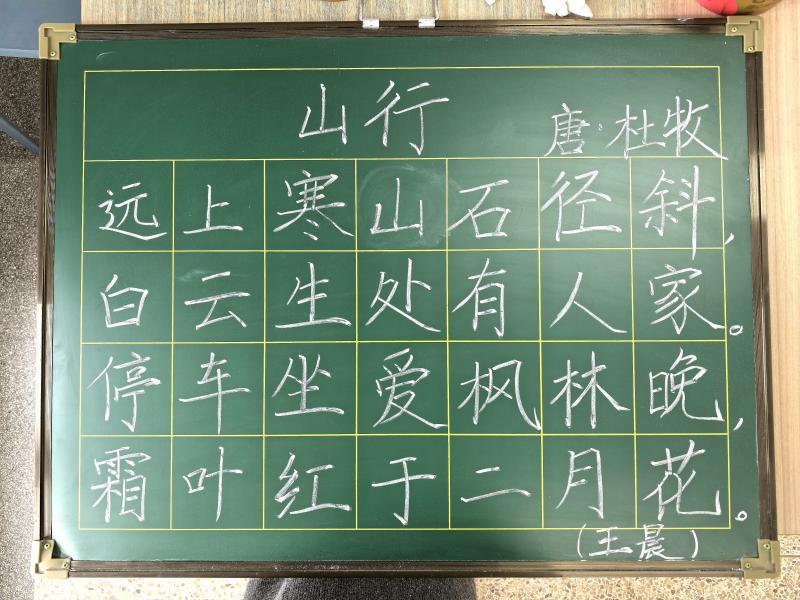 山行
唐·杜牧
远上寒山石径斜，
白云生处有人家。
停车坐爱枫林晚，
霜叶红于二月花。
（王晨）